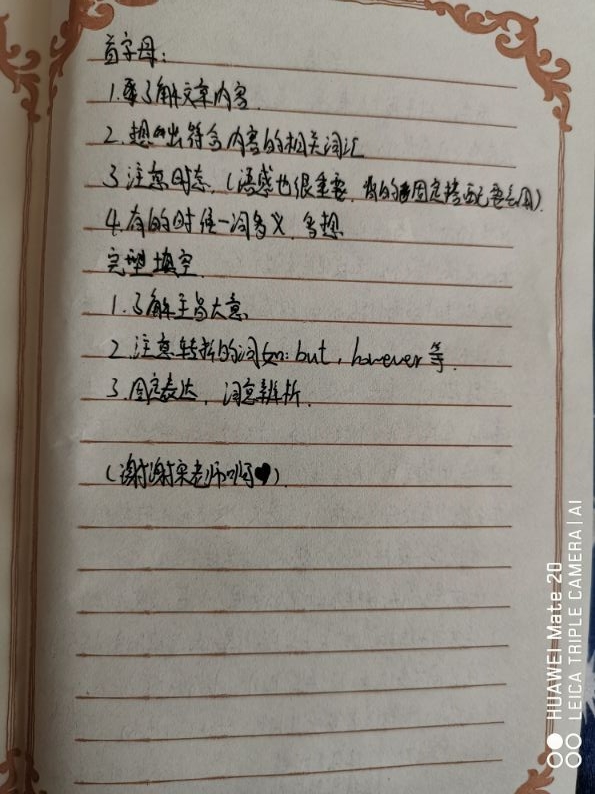 首字母:
1.要了解文章内容.
2.想出符合内容的相关词汇
3.注意时态,(语感也很重要,有的固定搭配要会用).
4.有的时候一词多义,多想
完型填空
1.了解主旨大意
2.注意转折的词如:but, however等.
3.固定表达,词意辨析.
(谢谢宋老师啊♥).
HUAWEI Mate 20
LEICA TRIPLE CAMERA | AI